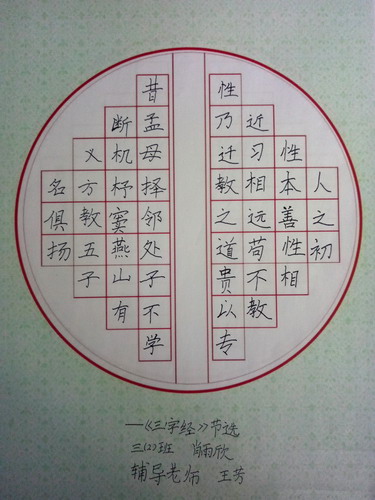 人之初
性本善性相
近习相远苟不教
性乃迁教之道贵以专
昔孟母择邻处子不学
断机杼窦燕山有
义方教五子
名俱扬
—《三字经》节选
三(2)班 肖雨欣
辅导老师 王芳